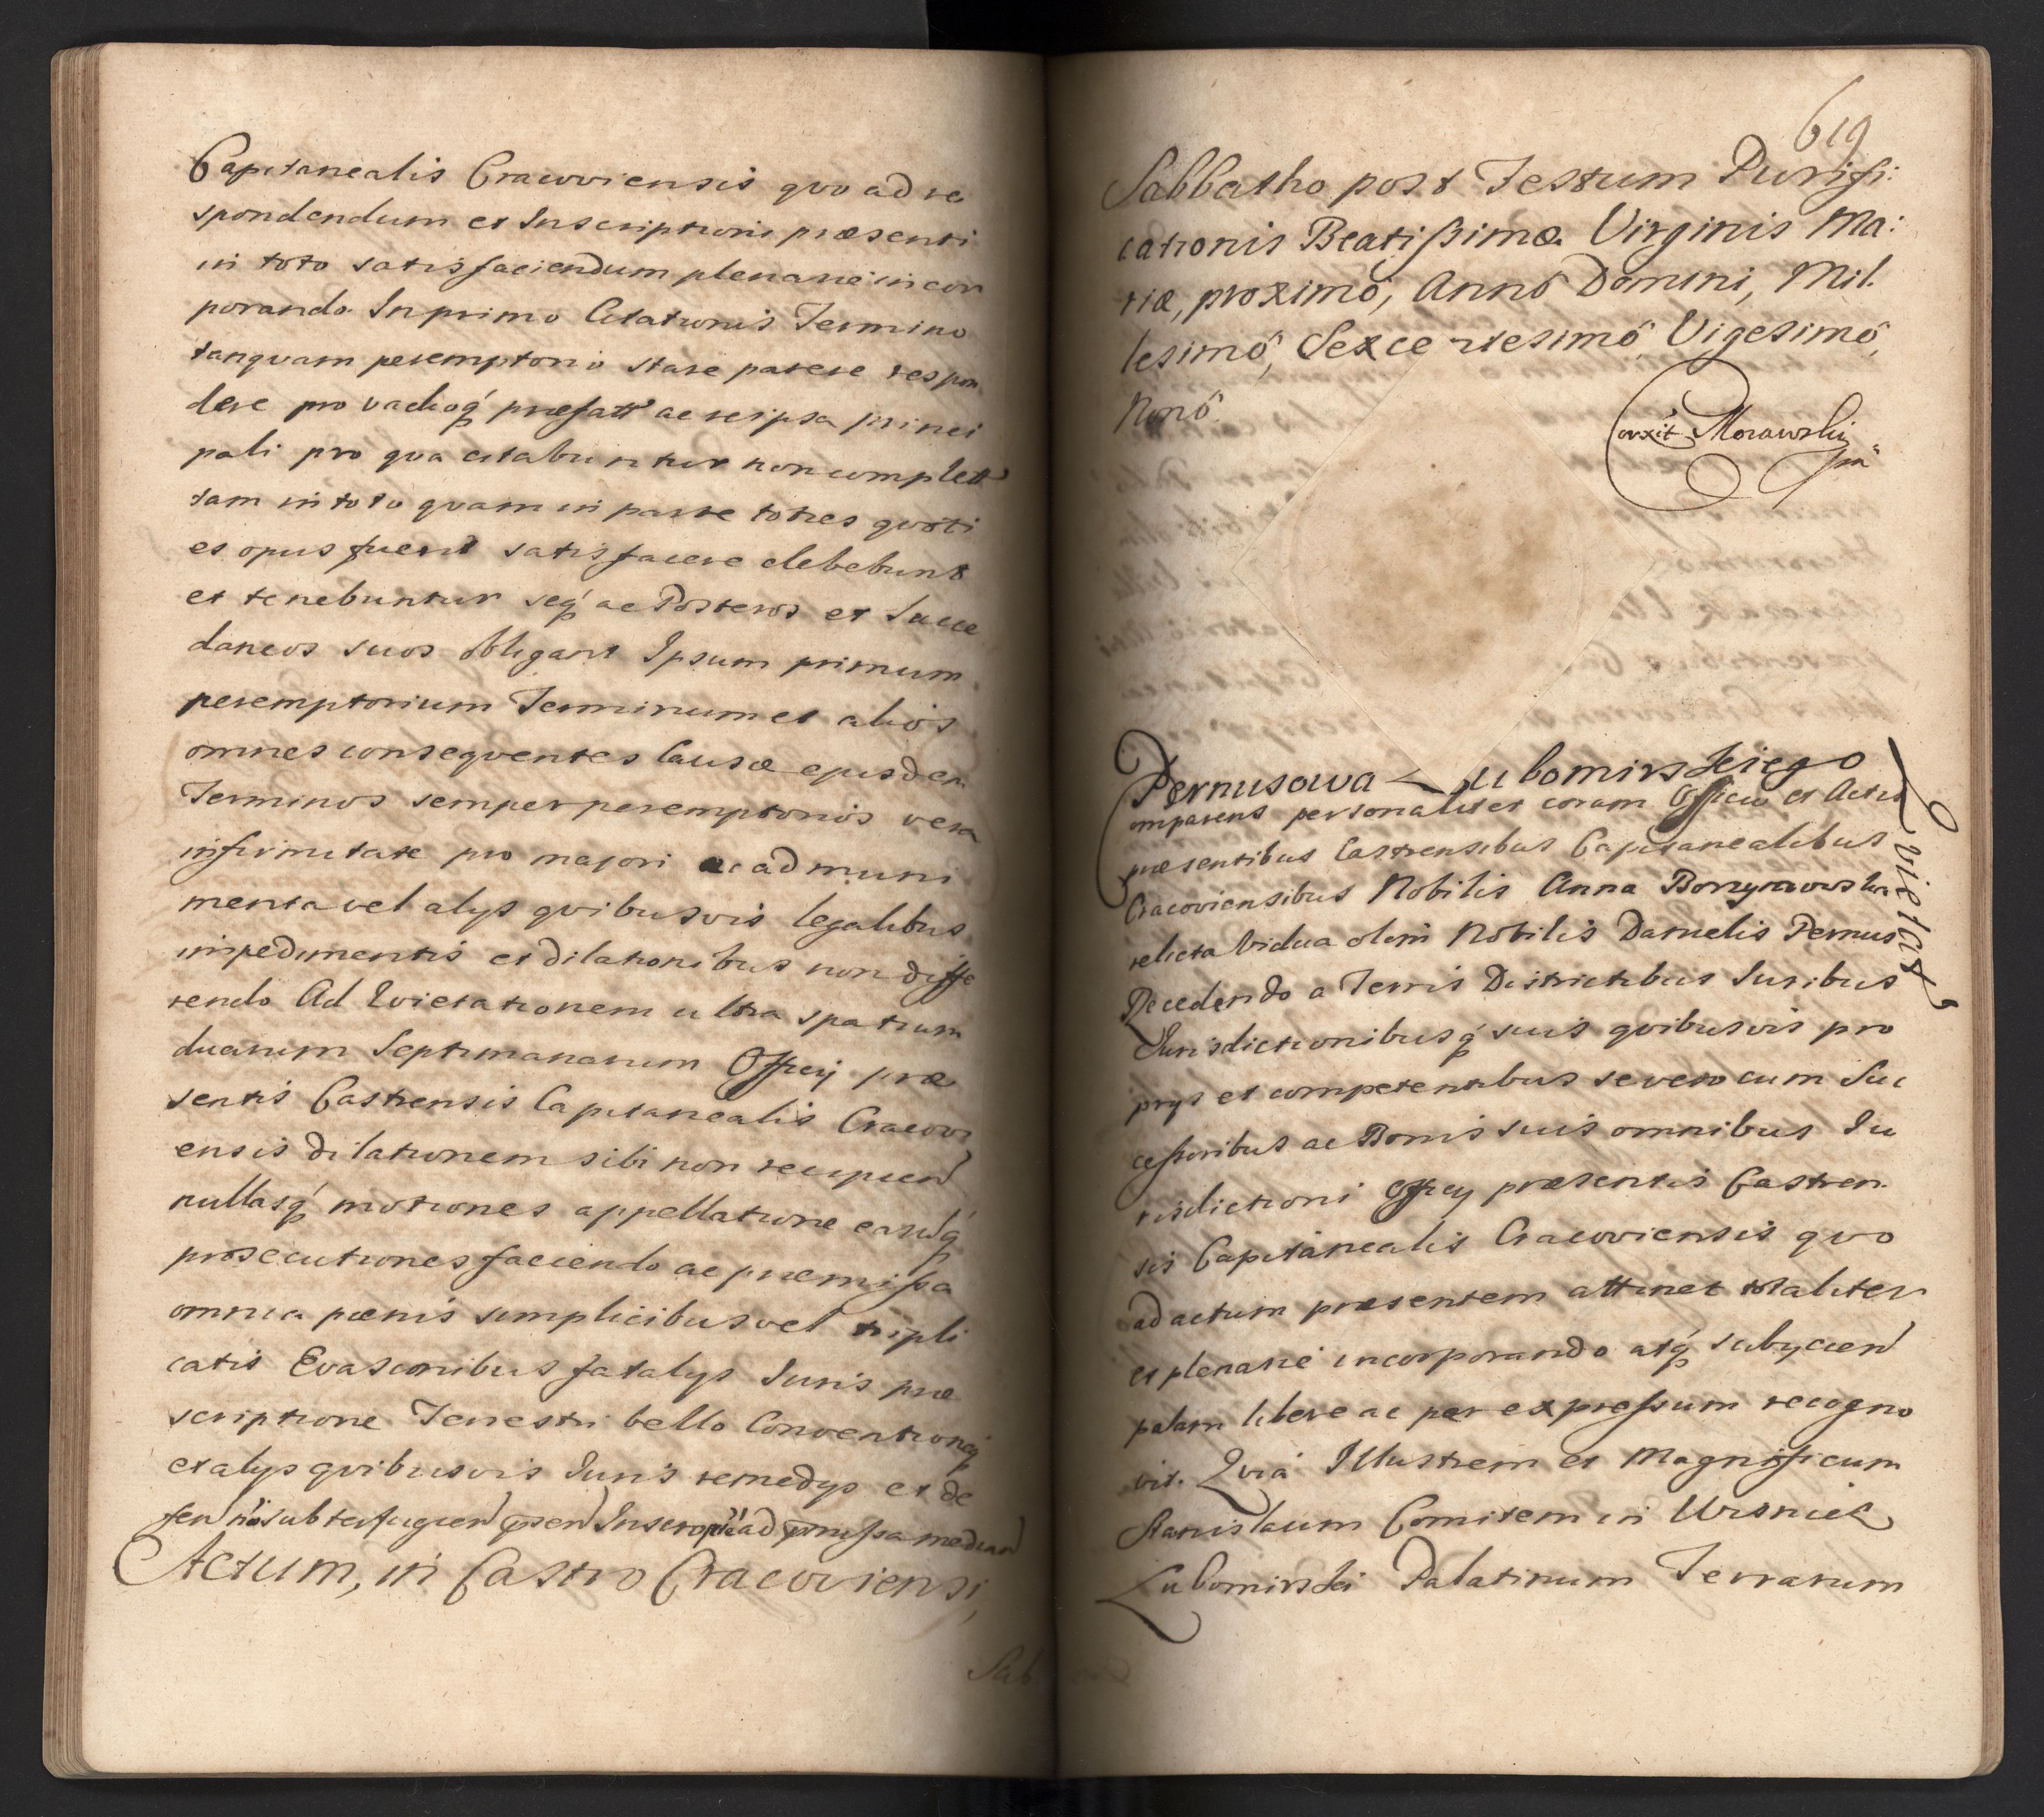 Capitanealis Cracoviensis quo ad re
spondendum et Inscriptioni præsenti
in toto satisfaciendum plenarié incor
porando. In primo Citationis Termino
tanquam peremptorio stare parere respon
dere pro vadioq́ præfatt ac reipsa princi
pali pro qva citabuntur non complett
tam in toto qvam in parte toties qvoti
es opus fuerit satisfacere debebunt
et tenebuntur seq́ ac Posteros et Succe
daneos suos obligant Ipsum primum
peremptorium Terminum et alios
omnes conseqventes Causæ ejusdem
Terminos semper peremptorios vera
infirmitate pro majori ac ad muni
menta vel alys qvibusvis legalibus
impedimentis et dilationibus non diffe
rendo Ad Qvietationem ultra spatium
duarum Septimanarum Officij præ
sentis Castrensis Capitanealis Cracovi
ensis dilationem sibi non recipien
nullasq́ motiones appellatione earuq́
prosecutiones faciendo ac præmissa
omnia pœnis simplicibus vel tripli
catis Evasionibus fatalys Juris præ
scriptione Terrestri bello Conventioneq́
et alys qvibusvis Juris remedys et de
fen nō subterfugien p̄sen Inscrop̄e ad p̄missa median
Actum, in Castro Cracoviensi,
Sab
619
Sabbatho post Festum Purifi:
cationis Beatissimæ Virginis Ma:
riæ, proximó, Annó Domini, Mil.
lesimó, Sexcentesimó Vigesimó,
Nonó.
Corxit Morawski
mp
Pernusowa Lubomirskiego
Qvietat
Comparens personaliter coram Officio et Actis
præsentibus Castrensibus Capitanealibus
Cracoviensibus Nobilis Anna Borymowska
relicta Vidua olim Nobilis Danielis Pernus
Recedendo a Terris Districtibus Juribus
Jurisdictionibusq́ suis qvibusvis pro
prys et competentibus se vero cum Suc
cessoribus ac Bonis suis omnibus Ju
risdictioni Officy præsentis Castren
sis Capitanealis Cracoviensis qvo
ad actum præsentem attinet totaliter
et plenarié incorporando atq́ subycien
palam libere ac per expressum recogno
vit. Qvia Illustrem et Magnificum
Stanislaum Comitem in Wisnicz
Lubomirski Palatinum Terrarum